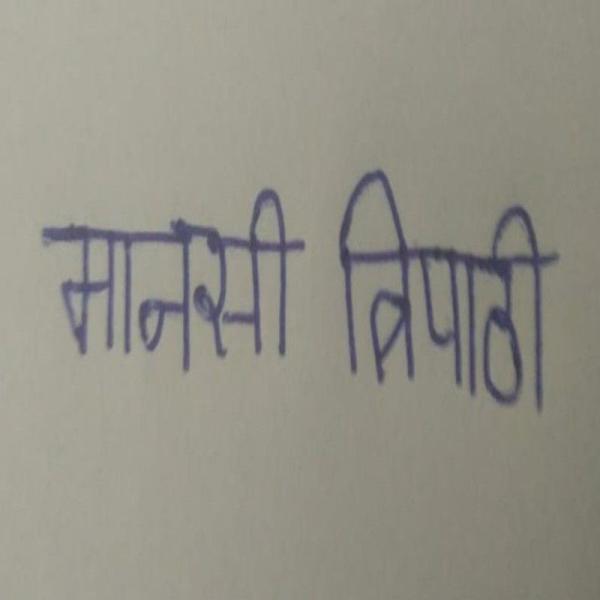 मानसी त्रिपाठी